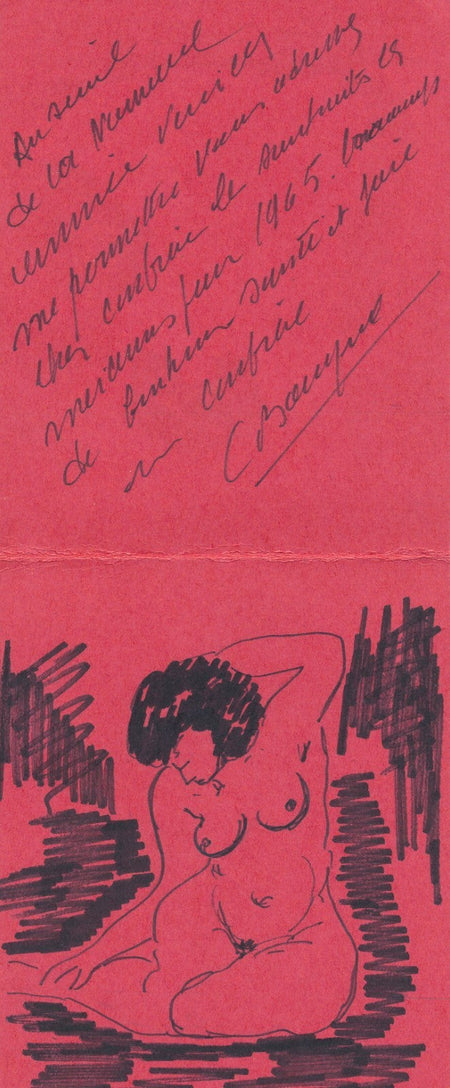 Au seuil
de la Nouvelle
année veuillez
me permettre vous adresser
cher confrère le souhaits les
meilleurs pour 1965. beaucoup
de bonheur santé et joie
un confrère